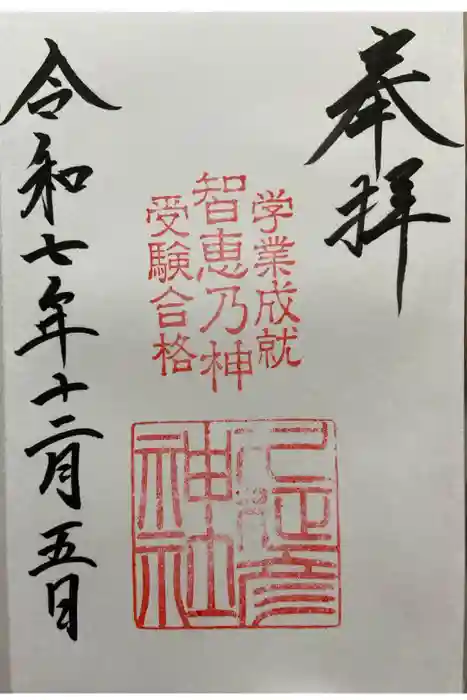 奉拝
学業成就
智恵乃神
受験合格
久延彦
神社
令和七年十二月五日